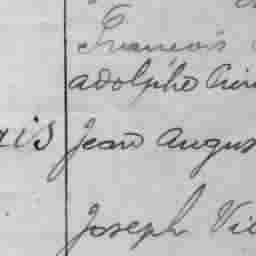 François
adolpho
ris Jean Augus
Joseph Vic